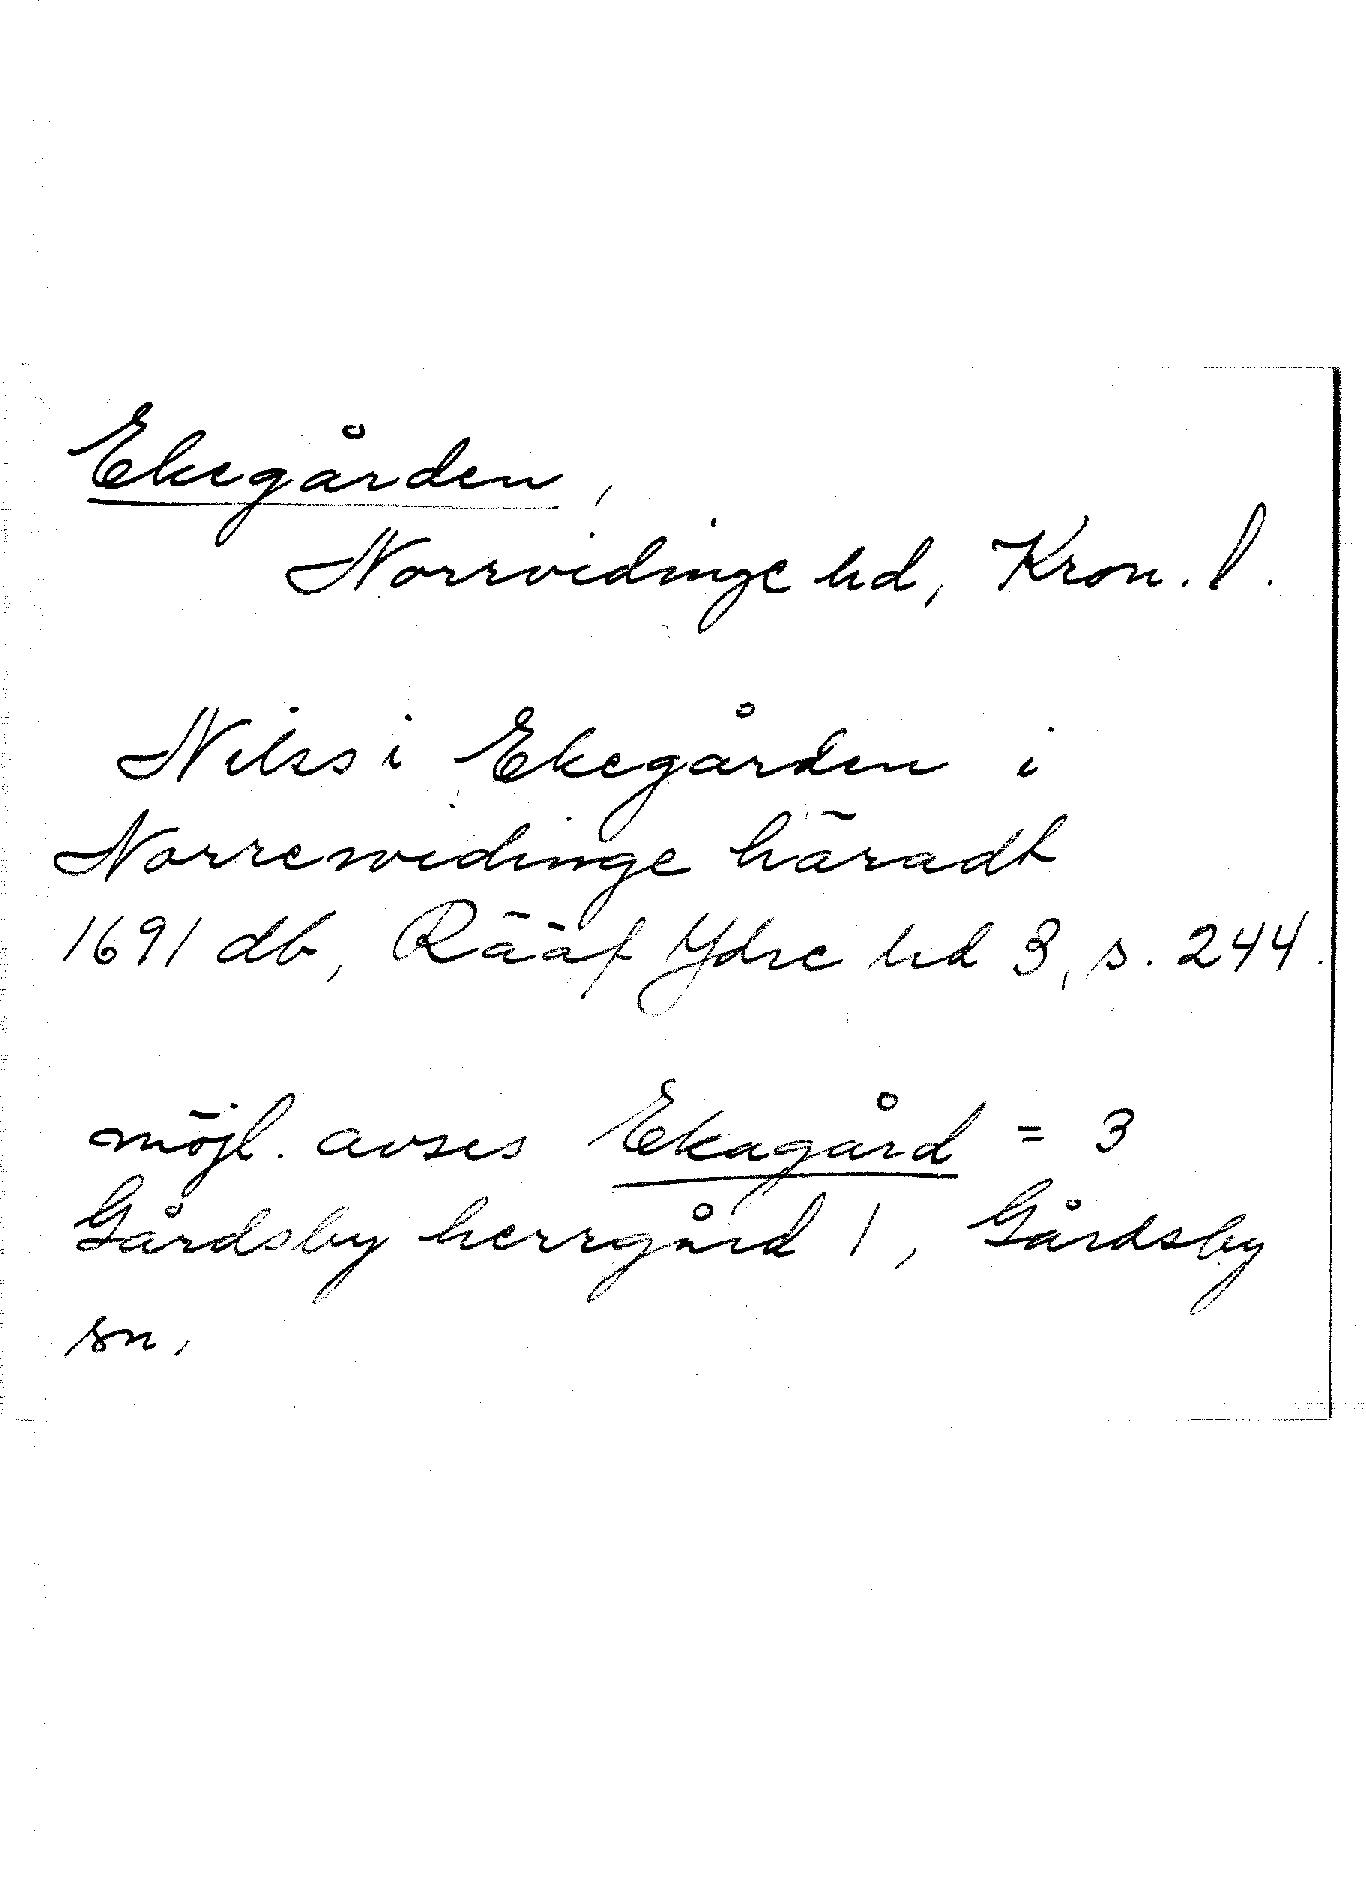 Ekegården,
Norrvidinge hd, Kron. l.
Nilss i Ekegården i
Norrewidinge häradt
1691 db, Rääf Ydre hd 3, s. 244.
möjl. avses Ekagård = 3
Gårdsby herrgård 1, Gårdsby
sn.